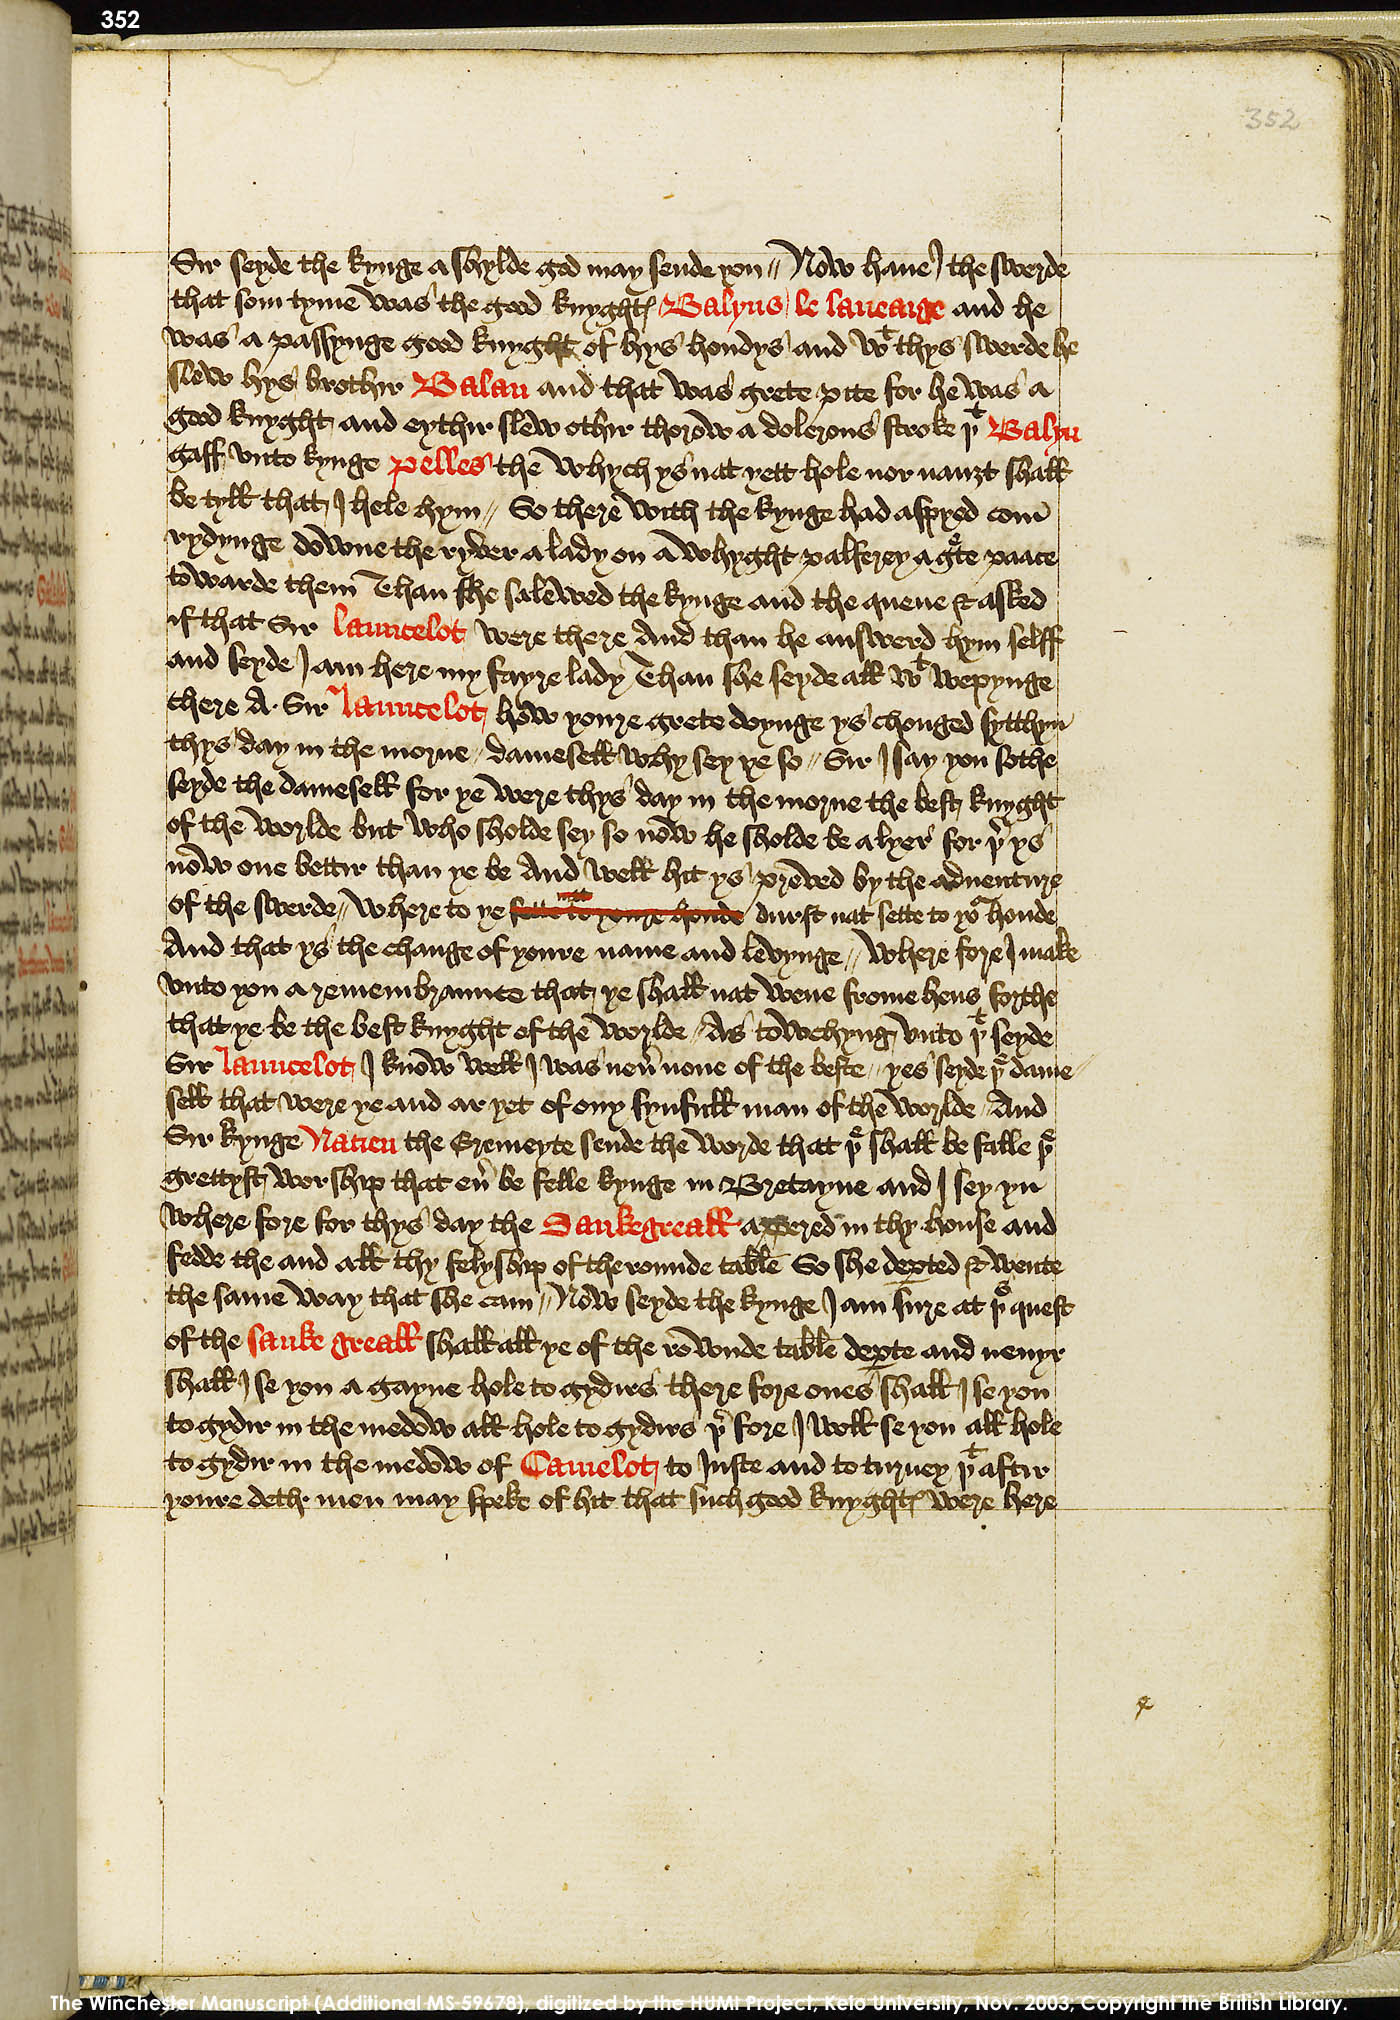 352
352
Sir seyde the kynge a shylde god may sende you // Now haue I the swerde
that som tyme was the good knyghtes Balyns le saveaige and he
was a passynge good knyght of hys hondys and wt thys swerde he
slew hys brothir Balan and that was grete pite for he was a
good knyght and eythir slew othir thorow a dolerous stroke þt Balyn
gaff vnto kynge pelles the whych ys nat yett hole nor nauȝt shall
be tyll that I hele hym // So there with the kynge had aspyed com
rydynge downe the ryver a lady on a whyght palferey a gͤte paace
towarde them Than she salewed the kynge and the quene & asked
if that Sir launcelot were there And than he answerd hym selff
and seyde I am here my fayre lady Than she seyde all wt wepynge
there A. Sir launcelot how youre grete doynge ys chonged sytthyn
thys day in the morne // damesell why sey ye so // Sir I say you sothe
seyde the damesell for ye were thys day in the morne the best knyght
of the worlde but who sholde sey so now he sholde be a lyer for þͤ ys
now one bettir than ye be And well hit ys preved by the adventure
of the swerde // where to ye durst nat sette to yoͬ honde
And that ys the change of youre name and levynge // Where fore I make
vnto you a remembraunce that ye shall nat wene frome hens forthe
that ye be the best knyght of the worlde // As towchyng vnto þt seyde
Sir launcelot I know well I was neuͬ none of the beste // yes seyde þͤ dame
sell that were ye and ar yet of ony synfull man of the worlde // And
Sir kynge Nacien the Eremeyte sende the worde that þͤ shall be falle þͤ
grettyst worship that euͬ be felle kynge in Bretayne and I sey yu
where fore for thys day the Sankegreall apered in thy house and
fedde the and all thy felyship of the rounde table So she depted & wente
the same way that she cam // Now seyde the kynge I am sure at þs quest
of the sanke greall shall all ye of the rownde table depte and neuyr
shall I se you a gayne hole to gydirs there fore ones shall I se you
to gydir in the medow all hole to gydirs þͤ fore I woll se you all hole
to gydir in the medow of Camelot to Juste and to turney þt aftir
youre deth men may speke of hit that such good knyghtes were here
The Winchester Manuscript (Additional MS-59678), digitized by the HUMI Project, Keio University, Nov. 2003; Copyright the British Library.